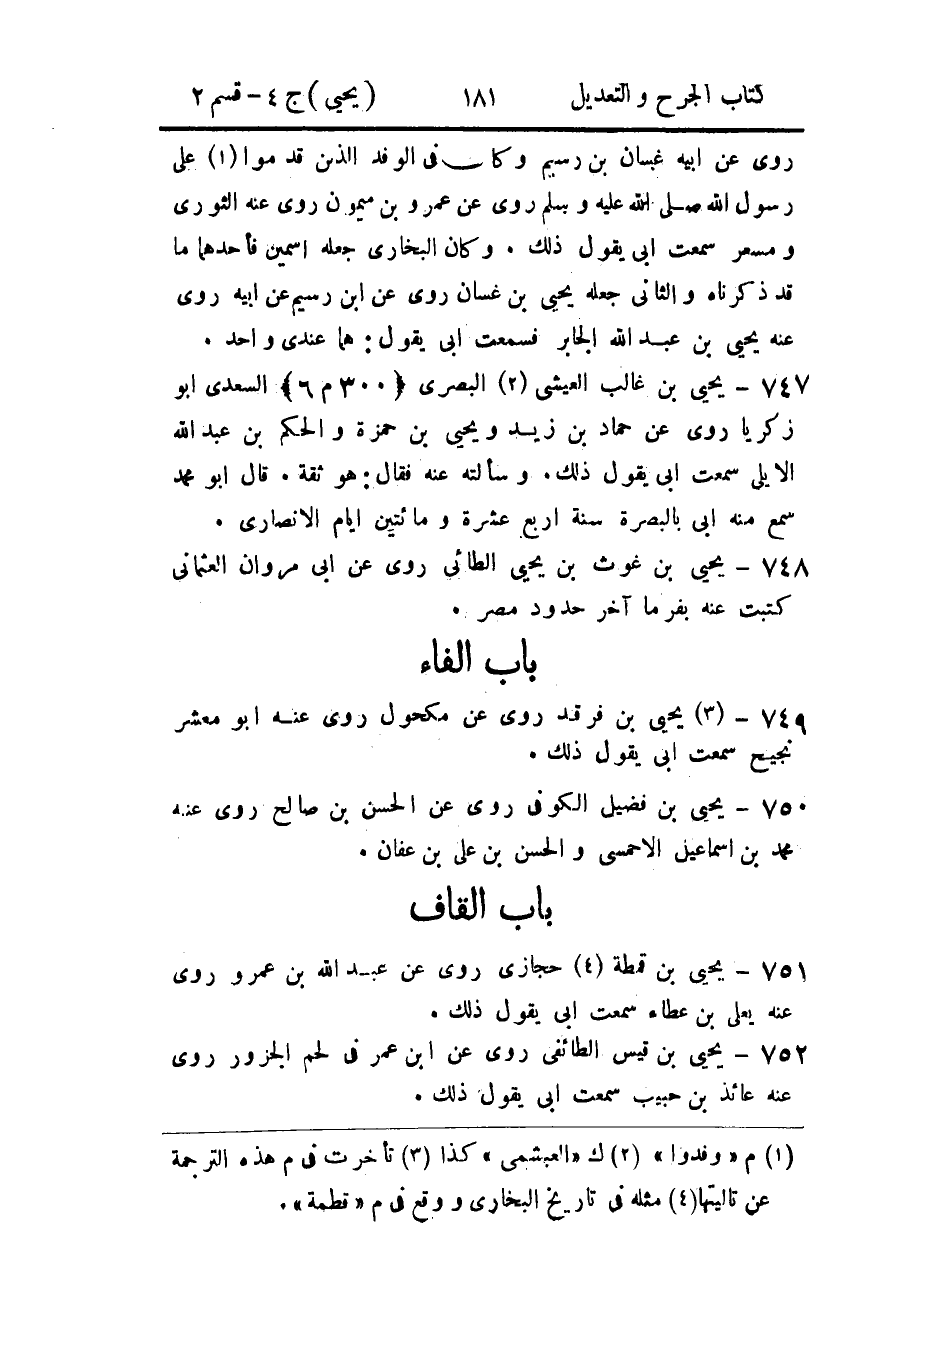 كتاب الجرح و التعديل ١٨١ (يحيى) ج ٤ - قسم ٢
روى عن ابيه غسان بن رسيم وكان فى الوفد الذين قدموا (١) على
رسول الله صلى الله عليه و سلم روى عن عمرو بن ميمون روى عنه الثورى
و مسعر سمعت ابى يقول ذلك . و كان البخارى جعله اسمين فأحدهما ما
قد ذكرناه و الثانى جعله يحيى بن غسان روى عن ابن رسيم عن ابيه روى
عنه يحيى بن عبد الله الجابر فسمعت ابى يقول : هما عندى واحد .
٧٤٧ - يحيى بن غالب العيشى (٢) البصرى {٣٠٠ م ٦} السعدى ابو
زكريا روى عن حماد بن زيد و يحيى بن حمزة و الحكم بن عبد الله
الايلى سمعت ابى يقول ذلك . و سألته عنه فقال : هو ثقة . قال ابو محمد
سمع منه ابى بالبصرة سنة اربع عشرة و مائتين ايام الانصارى .
٧٤٨ - يحيى بن غوث بن يحيى الطائى روى عن ابى مروان العثمانى
كتبت عنه بفرما آخر حدود مصر .
باب الفاء
٧٤٩ - (٣) يحيى بن فرقد روى عن مكحول روى عنه ابو معشر
نجيح سمعت ابى يقول ذلك .
٧٥٠ - يحيى بن فضيل الكوفى روى عن الحسن بن صالح روى عنه
محمد بن اسماعيل الاحمسى و الحسن بن على بن عفان .
باب القاف
٧٥١ - يحيى بن قمطة (٤) حجازى روى عن عبد الله بن عمرو روى
عنه يعلى بن عطاء سمعت ابى يقول ذلك .
٧٥٢ - يحيى بن قيس الطائفى روى عن ابن عمر فى لحم الجزور روى
عنه عائذ بن حبيب سمعت ابى يقول ذلك .
(١) م «وفدوا» (٢) ك «العبشمى» كذا (٣) تأخرت فى م هذه الترجمة
عن تاليتها (٤) مثله فى تاريخ البخارى و وقع فى م «قطمة» .